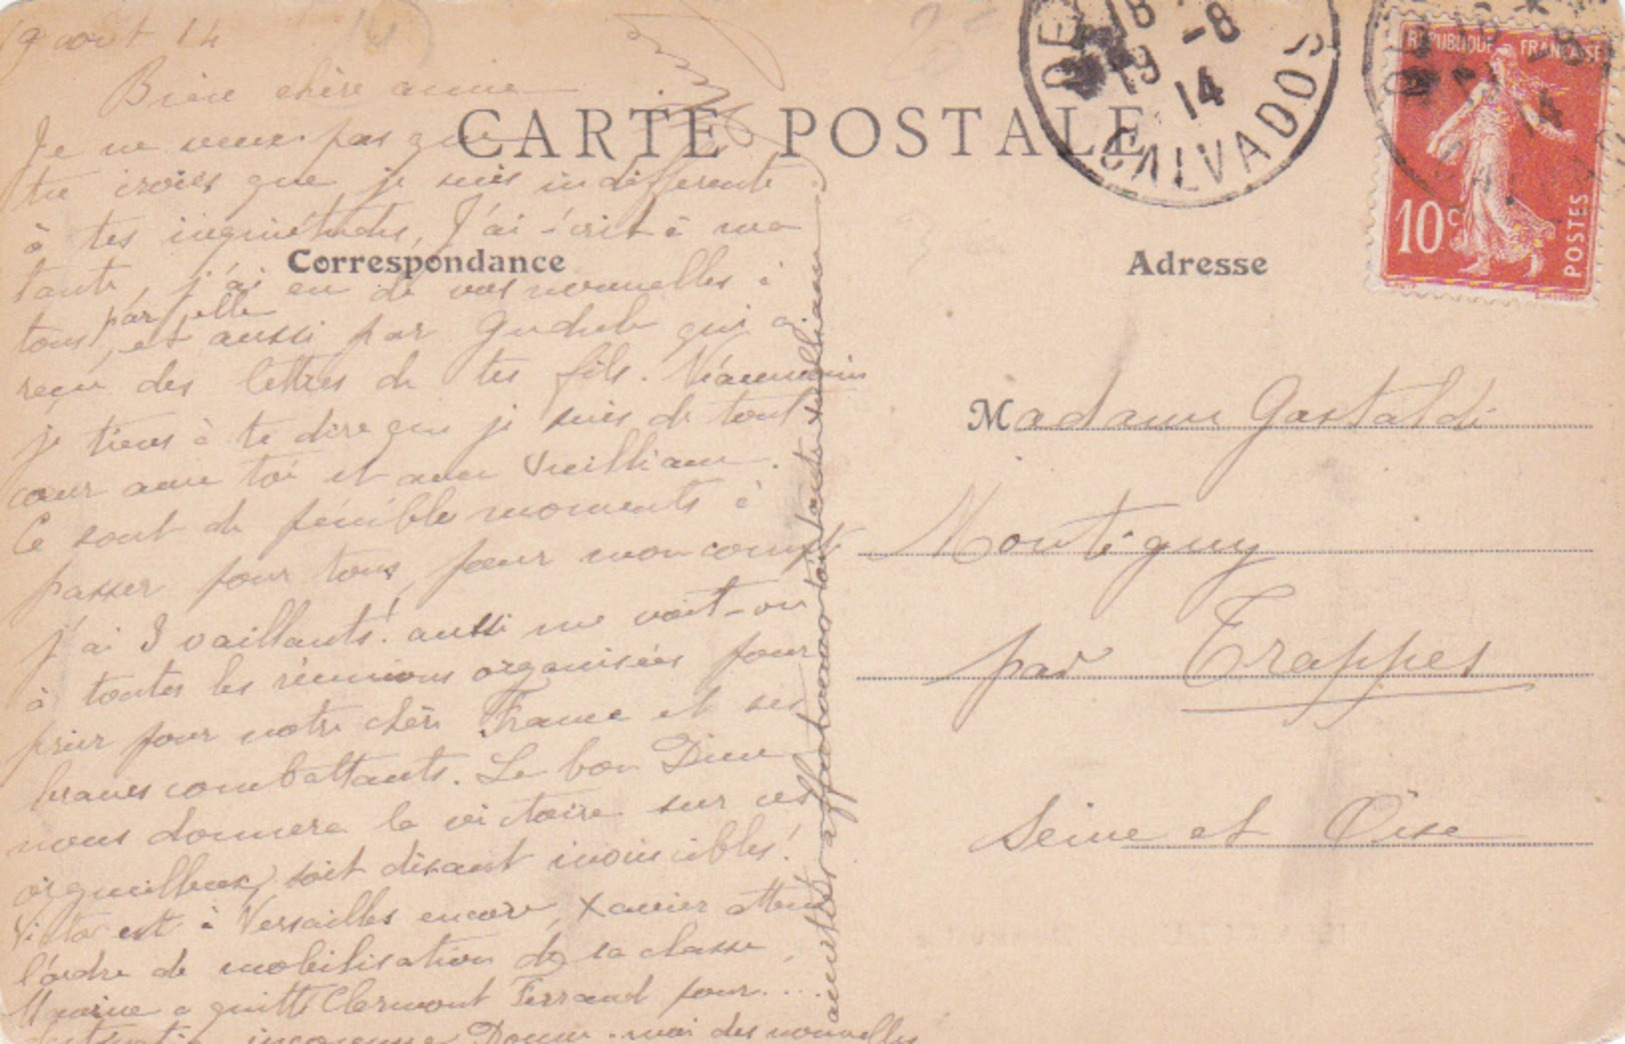 19 aout 14
Bien chère amie
Je ne veux pas que
tu croies que je suis indifférente
à tes inquiétudes, J'ai écrit à ma
tante, j'ai eu de vos nouvelles à
tous, par elle et aussi par Gudule qui a
reçu des lettres de tes fils. Néanmoins
je tiens à te dire que je suis de tout
cœur avec toi et avec Vuilliaum.
Ce sont de pénibles moments à
passer pour tous, pour mon compte
j'ai 3 vaillants! aussi me voit-on
à toutes les réunions organisées pour
prier pour notre chère France et ses
braves combattants. Le bon Dieu
nous donnera la victoire sur ces
orgueilleux, soit disant invincibles!
Victor est à Versailles encore, Xavier attend
l'ordre de mobilisation de sa classe,
Maurice a quitté Clermont Ferrand pour....
destination inconnue Donne-moi des nouvelles
CARTE POSTALE
Correspondance
Adresse
18
19 -8
14
CALVADOS
REPUBLIQUE FRANCAISE
10c
POSTES
Madame Gastaldi
Montigny
par Trappes
Seine et Oise